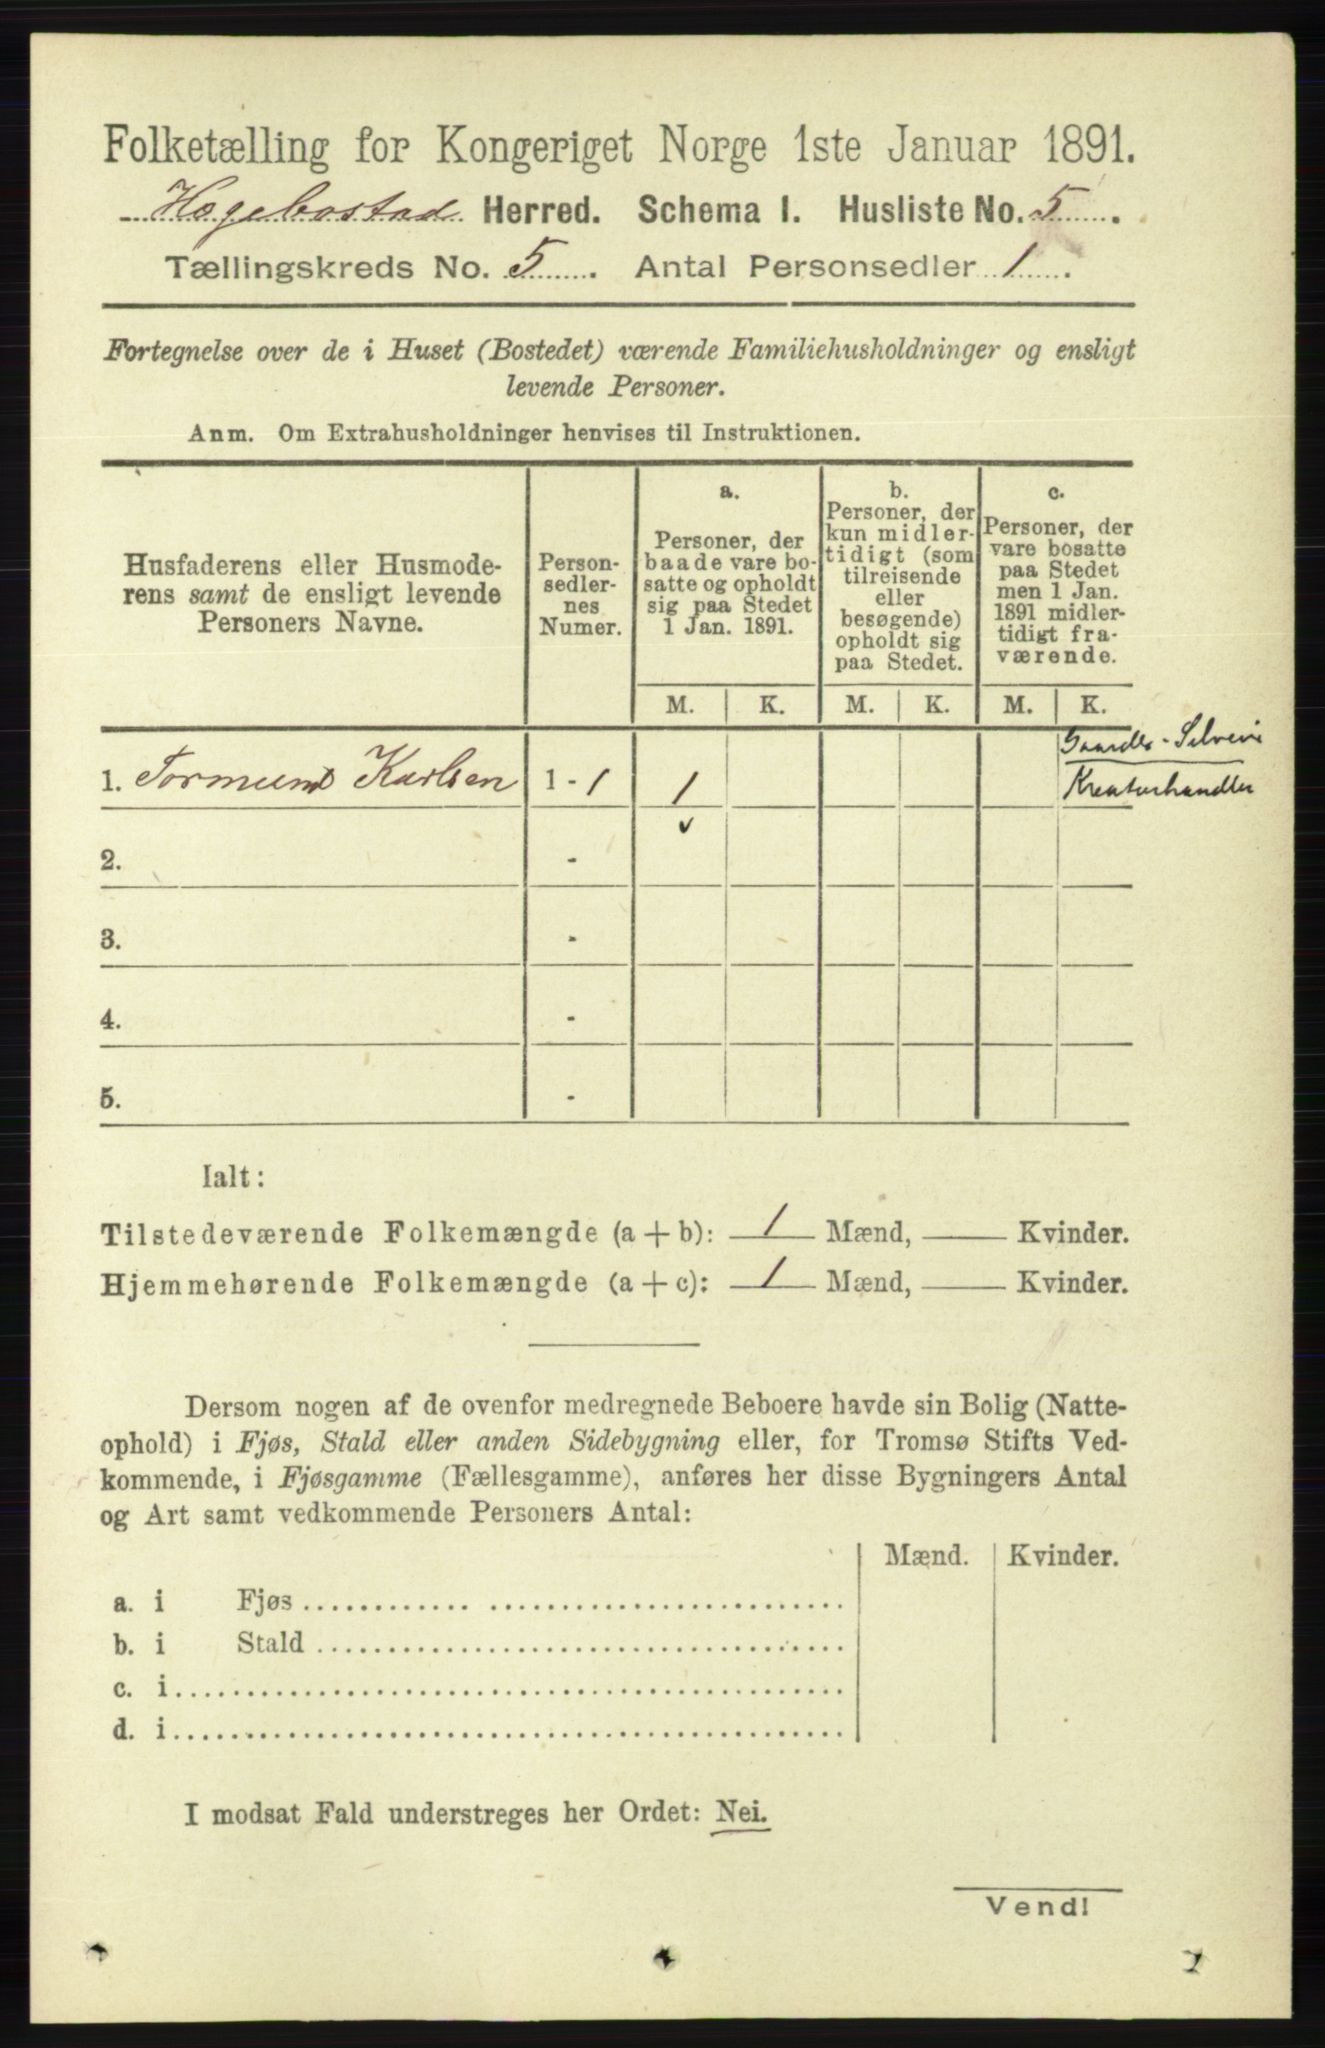 Folketælling for Kongeriget Norge 1ste Januar 1891.
Hægebostad Herred. Schema I. Husliste No. 5.
Tællingskreds No. 5. Antal Personsedler 1.
Fortegnelse over de i Huset (Bostedet) værende Familiehusholdninger og ensligt
levende Personer.
Anm. Om Extrahusholdninger henvises til Instruktionen.
Husfaderens eller Husmode-
rens samt de ensligt levende
Personers Navne.
Person-
sedler-
nes
Numer.
a.
Personer, der
baade vare bo-
satte og opholdt
sig paa Stedet
1 Jan. 1891.
b.
Personer, der
kun midler-
tidigt (som
tilreisende
eller
besøgende)
opholdt sig
paa Stedet.
c.
Personer, der
vare bosatte
paa Stedet
men 1 Jan.
1891 midler-
tidigt fra-
værende.
M. K. M. K. M. K.
Gaardb.-Selveie
Kreaturhandler
1. Tormund Karlsen 1 - 1 1
2. -
3. -
4. -
5. -
Ialt:
Tilstedeværende Folkemængde (a + b): 1 Mænd, — Kvinder.
Hjemmehørende Folkemængde (a + c): 1 Mænd, — Kvinder.
Dersom nogen af de ovenfor medregnede Beboere havde sin Bolig (Natte-
ophold) i Fjøs, Stald eller anden Sidebygning eller, for Tromsø Stifts Ved-
kommende, i Fjøsgamme (Fællesgamme), anføres her disse Bygningers Antal
og Art samt vedkommende Personers Antal:
Mænd. Kvinder.
a. i Fjøs
b. i Stald
c. i
d. i
I modsat Fald understreges her Ordet: Nei.
Vend!